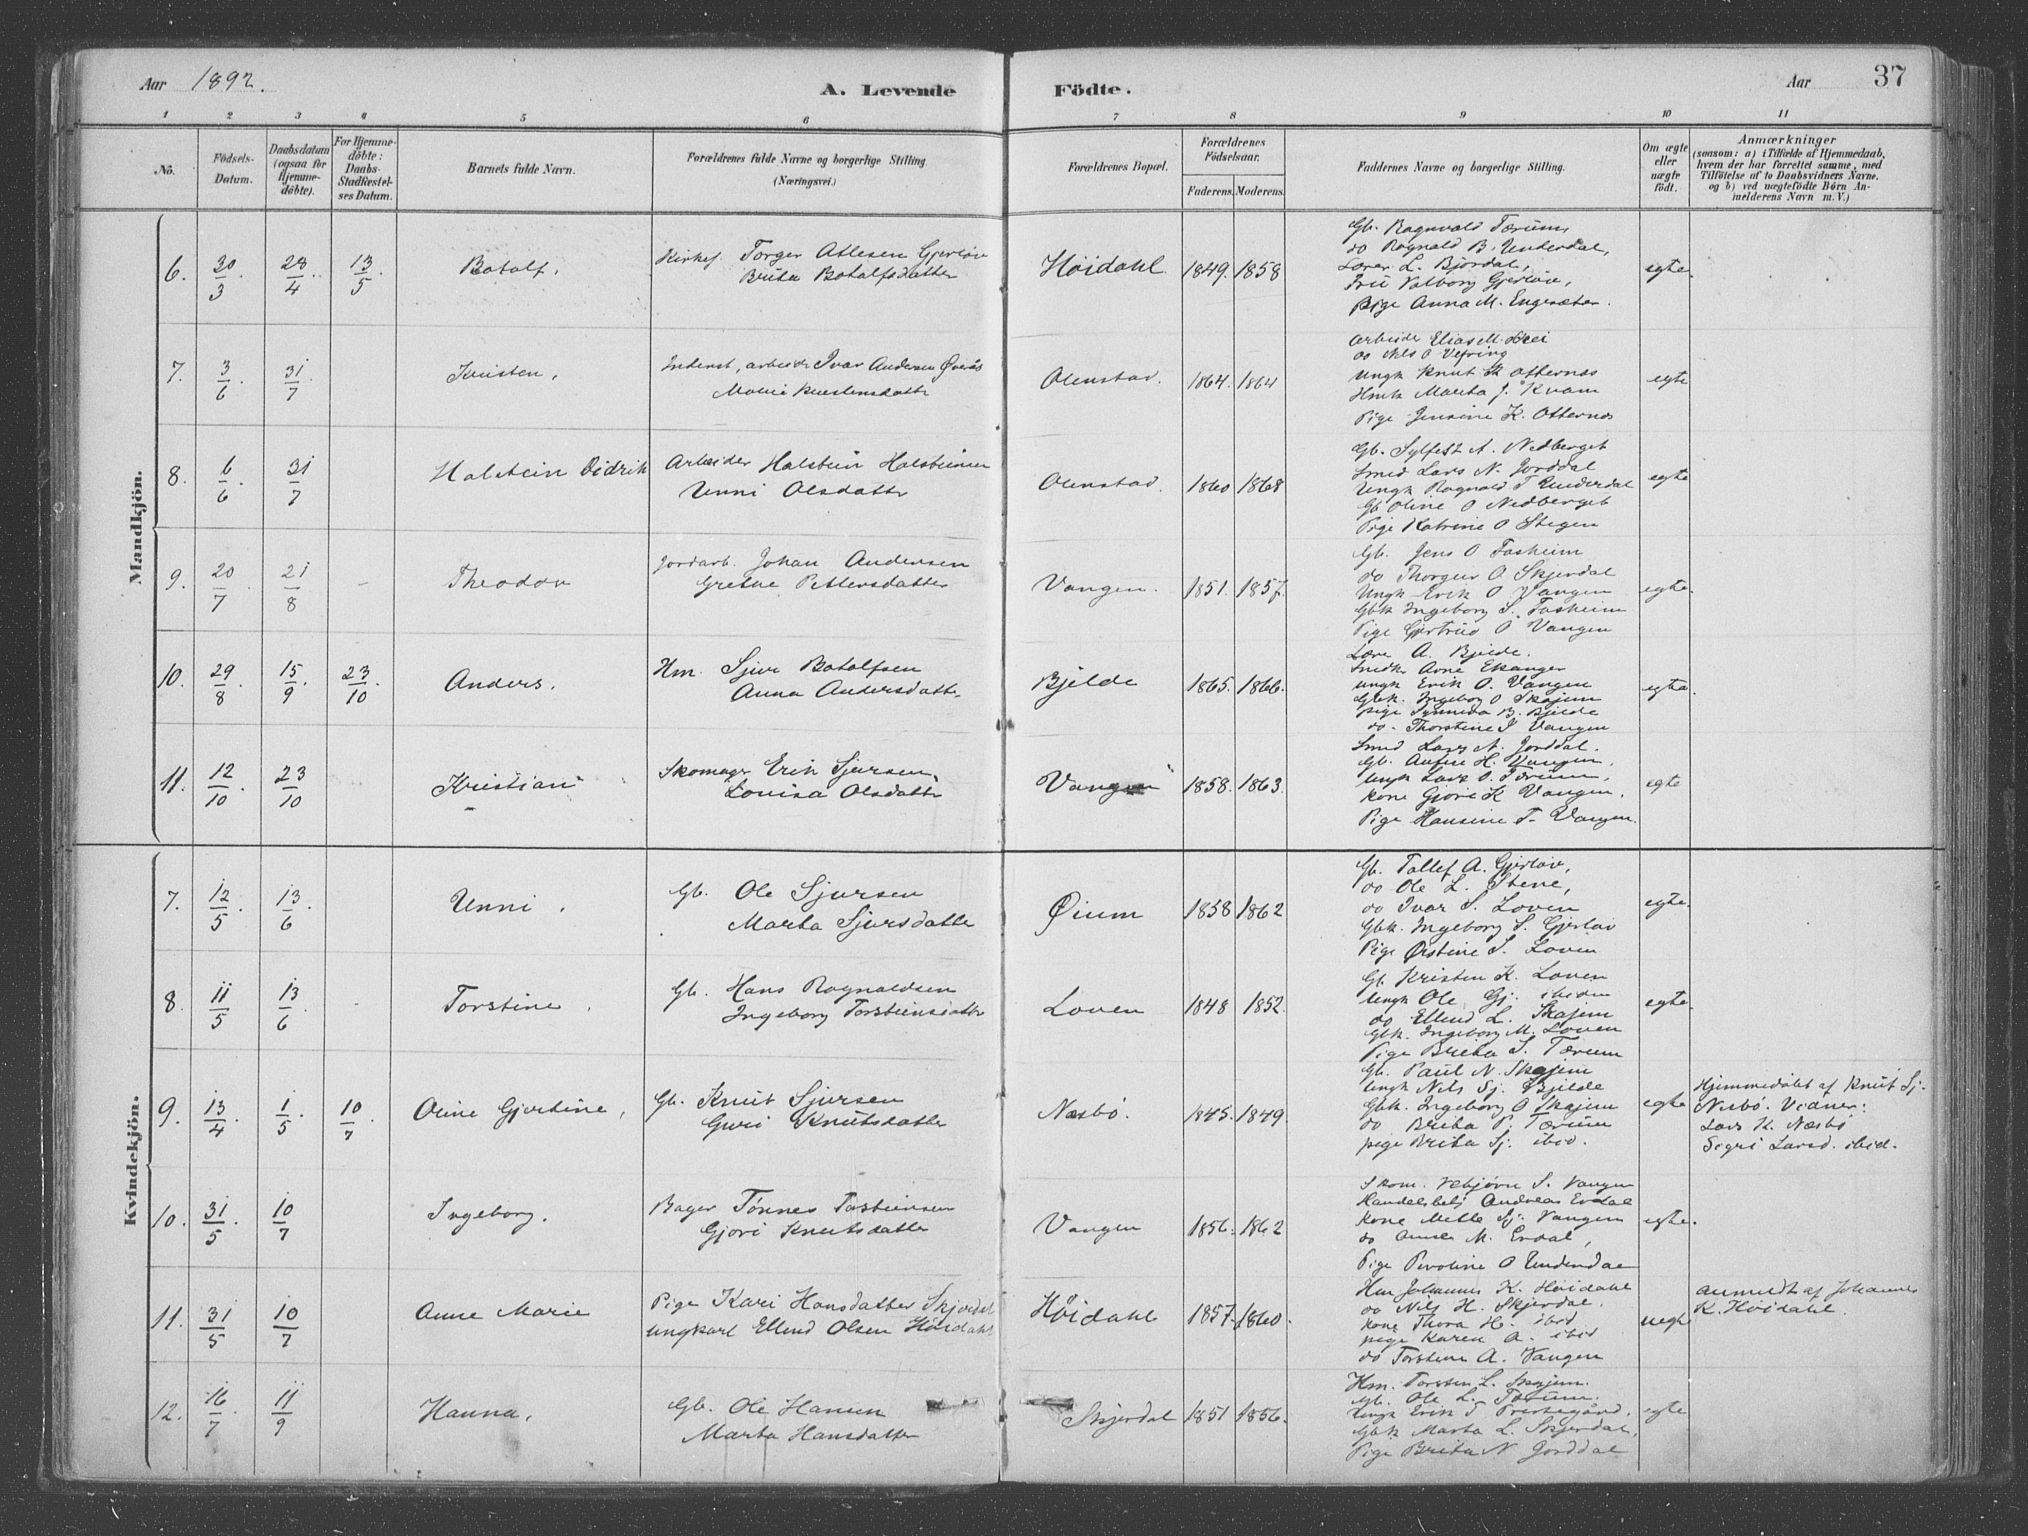 Aar 1892.
A. Levende Födte.
Aar
37
1 2 3 4 5 6 7 8 9 10 11
No.
Födsels-Datum.
Daabsdatum (ogsaa for Hjemme-döbte).
For Hjemme-döbte: Daabs-Stadfæstel-ses Datum.
Barnets fulde Navn.
Forældrenes fulde Navne og borgerlige Stilling (Næringsvei.)
Forældrenes Bopæl.
Forældrenes Födselsaar.
Faderens. Moderens.
Faddernes Navne og borgerlige Stilling.
Om ægte eller uægte födt.
Anmærkninger
(saasom: a) i Tilfælde af Hjemmedaab,
hvem der har forrettet samme, med
Tilföielse af to Daabsvidners Navne,
og b) ved uægtefödte Börn An-
melderens Navn m. V.)
Mandkjön.
6. 30/3 28/4 13/5 Botolf. Kirkesj Torger Atlesen Gjerløv
Brita Botolfsdatter
Höidahl 1849. 1858
Gb. Ragnvald Tærum,
do Rognald B. Underdal,
Lærer L. Bjørdal,
Fru Valborg Gjerløv,
Pige Anna M. Engesæter.
egte.
7. 3/6 31/7 Kristen, Inderst, arbeider Ivar Andersen Øveraas
Malene Kristensdatter
Olenstad. 1864. 1864
Arbeider Elias M.
do Nils O Vefring
Ungk Knut K Otternes
Hmk Marta J. Kvam
Pige Jensine K. Otternes
egte
8. 6/6 31/7 Halstein Didrik Arbeider Halstein Halsteinsen
Unni Olsdatter
Olenstad. 1860 1868
Gb. Sylfest A. Nedberget
Smed Lars N. Jorddal
Ungk Rognald T Underdal
Gb Oline O Nedberget
Pige Katrine O Stegen
egte
9. 20/7 21/8 - Theodor Jordarb. Johan Andersen
Grethe Pettersdatter
Vangen. 1851. 1857.
Gb. Jens O Fosheim
do Thorgeir O Skjerdal
Ungk Erik O Vangen
Gbk Ingeborg S. Fosheim
Pige Gjertrud O Vangen
egte.
10. 29/8 15/9 23/10 Anders. Hm. Sjur Botolfsen
Anna Andersdatter
Bjelde 1865. 1866.
Lærer A. Bjelde.
Snedker Arne Ekanger
ungk Erik O. Vangen
Gbk. Ingeborg O Skajem
pige Synneva B. Bjelde
do. Thorstine I Vangen
egte
11. 12/10 23/10 Kristian Skomager Erik Sjursen
Lovisa Olsdatter
Vangen 1858. 1863.
Smed Lars N. Jorddal.
Gb. Anfin H. Vangen,
Ungk Lars O. Tærum,
kone Gjøri K Vangen,
Pige Hansine T. Vangen.
egte
Kvindekjön.
7. 12/5 13/6 Unni. Gb. Ole Sjursen
Marta Sjursdatter
Øium 1858 1862
Gb. Tollef A. Gjerløv,
do Ole L. Stene,
do Ivar S. Loven
Gbk. Ingeborg S. Gjerløv
Pige Ørstine S. Loven
egte.
8 11/5 13/6 - Torstine. Gb. Hans Rognaldsen
Ingeborg Torsteinsdatter
Loven 1848 1852.
Gb. Kristen K. Loven
Ungk Ole Gj. ibiden
do Ellend L. Skajem
Gbk. Ingeborg M. Loven
Pige Brita S. Tærum
egte
9. 13/4 1/5 10/7 Oline Gjertine, Gb. Knut Sjursen
Guri Knutsdatter
Næsbö. 1845. 1849.
Gb. Paul N. Skajem
Ungk Nils Sj. Bjelde
Gbk. Ingeborg O Skajem
do Brita P. Tærum
pige Brita Sj. ibid.
egte
Hjemmedøbt af Knut Sj.
Nesbö. Vidner:
Lars K. Næsbö
Sigri Larsd. ibid.
10. 31/5 10/7 Ingeborg. Bager Tönnes Tosteinsen
Gjøri Knutsdatter
Vangen 1856. 1862
Skom. Vebjørn S. Vangen
Handelsbetj Andreas Erdal
kone Mette Sj. Vangen
do Anne M. Erdal,
Pige Peroline O Underdal
egte.
11. 31/5 10/7 Anne Marie Pige Kari Hansdatter Skjerdal
ungkarl Ellend Olsen Höidahl
Höidahl 1857. 1860.
Hm Johannes K. Höidahl
do Nils H. Skjerdal,
kone Thora H. ibid
pige Karen A. ibid
do Torstine A. Vangen
uegte
anmeldt af Johannes
K. Höidahl.
12. 16/7 11/9 Hanna. Gb. Ole Hansen
Marta Hansdatter
Skjerdal 1851 1856.
Hm. Torsten L. Skajem.
Gb. Ole L. Tærum.
Ungk Erik J Prestegård.
Gbk Marta L. Skjerdal,
Pige Brita N. Jorddal
egte